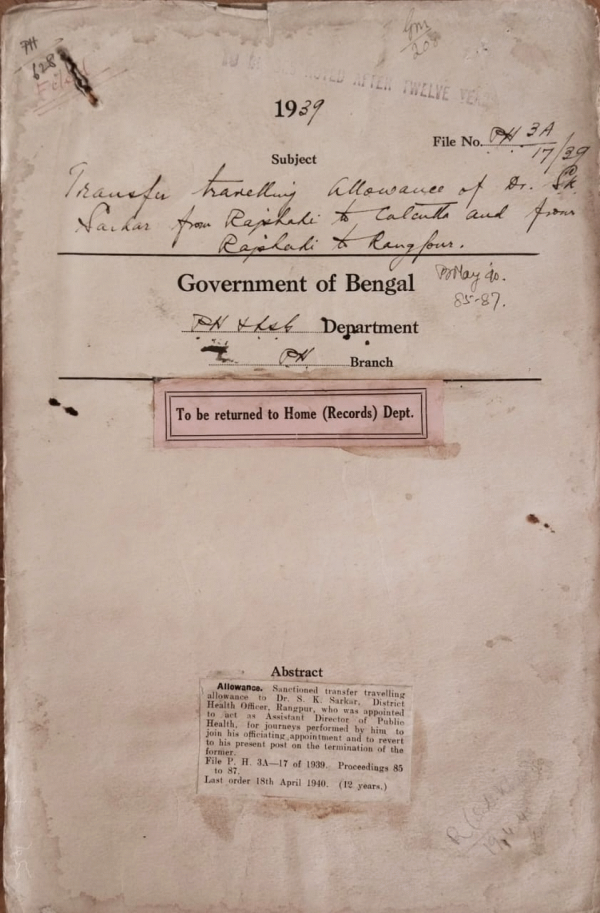 PH
628
TO BE DESTROYED AFTER TWELVE YEARS
1939
File No. PH 3A
17/39
Subject
Transfer travelling Allowance of Dr. S.K.
Sarkar from Rajshahi to Calcutta and from
Rajshahi to Rangpur.
Government of Bengal
B May 40.
85-87.
PH & LSG Department
PH Branch
To be returned to Home (Records) Dept.
Abstract
Allowance. Sanctioned transfer travelling
allowance to Dr. S. K. Sarkar, District
Health Officer, Rangpur, who was appointed
to act as Assistant Director of Public
Health, for journeys performed by him to
join his officiating appointment and to revert
to his present post on the termination of the
former.
File P. H. 3A—17 of 1939. Proceedings 85
to 87.
Last order 18th April 1940. (12 years.)